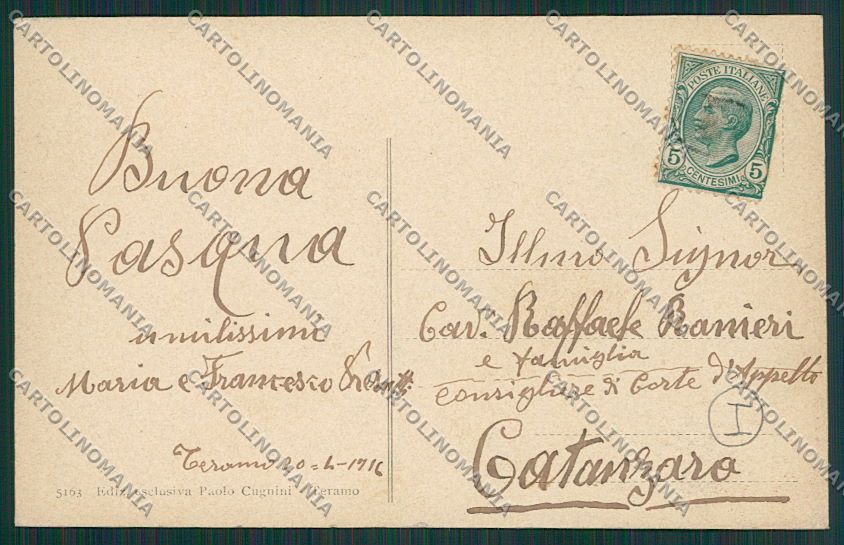 Buona
Pasqua
umilissimi
Maria e Francesco
Teramo 20=4-1916
5163 Ediz. esclusiva Paolo Cugnini Teramo
POSTE ITALIANE
5 CENTESIMI 5
Illmo Signor
Cav. Raffaele Ranieri
e famiglia
Consigliere di Corte d'Appello
I
Catanzaro
CARTOLINOMANIA